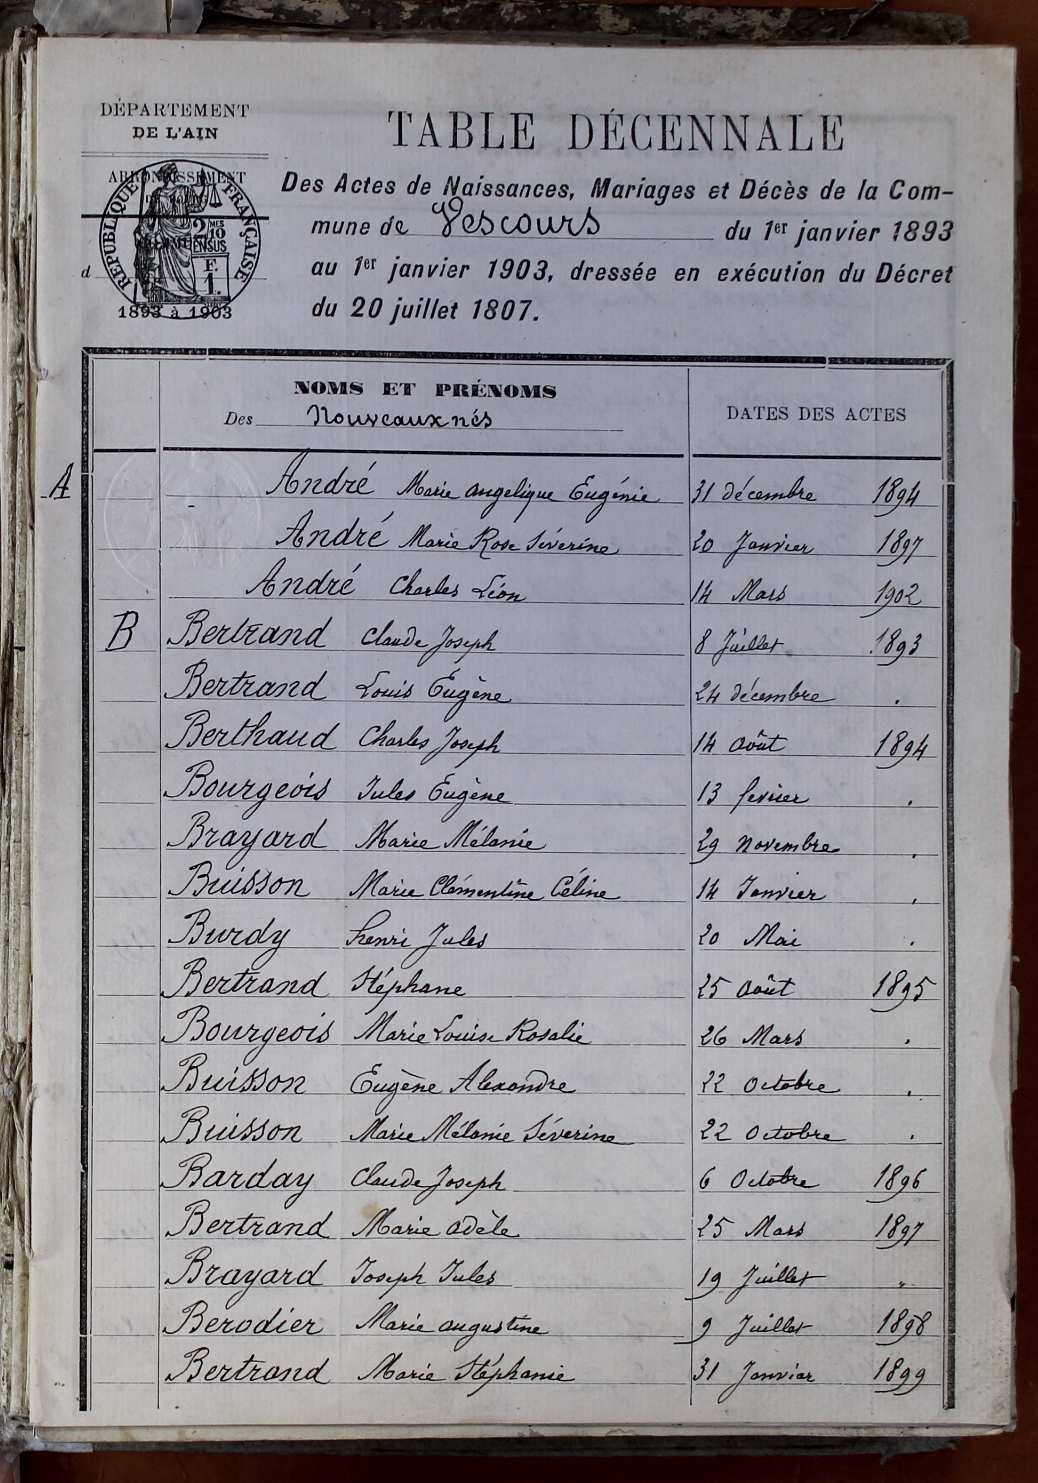 DÉPARTEMENT
DE L'AIN
ARRONDISSEMENT
RÉPUBLIQUE FRANÇAISE
2 MES
10
EN SUS
F.
1.
d
1893 à 1903
TABLE DÉCENNALE
Des Actes de Naissances, Mariages et Décès de la Com-
mune de Vescours du 1er janvier 1893
au 1er janvier 1903, dressée en exécution du Décret
du 20 juillet 1807.
NOMS ET PRÉNOMS
Des Nouveaux nés
DATES DES ACTES
A André Marie angelique Eugénie 31 décembre 1894
André Marie Rose Séverine 20 Janvier 1897
André Charles Léon 14 Mars 1902
B Bertrand Claude Joseph 8 Juillet 1893
Bertrand Louis Eugène 24 décembre .
Berthaud Charles Joseph 14 août 1894
Bourgeois Jules Eugène 13 fevrier .
Brayard Marie Mélanie 29 novembre .
Buisson Marie Clémentine Céline 14 Janvier .
Burdy henri Jules 20 Mai .
Bertrand Stéphane 25 août 1895
Bourgeois Marie Louise Rosalie 26 Mars .
Buisson Eugène Alexandre 22 octobre .
Buisson Marie Mélanie Séverine 22 octobre .
Barday Claude Joseph 6 Octobre 1896
Bertrand Marie adèle 25 Mars 1897
Brayard Joseph Jules 19 Juillet "
Berodier Marie augustine 9 Juillet 1898
Bertrand Marie Stéphanie 31 Janvier 1899